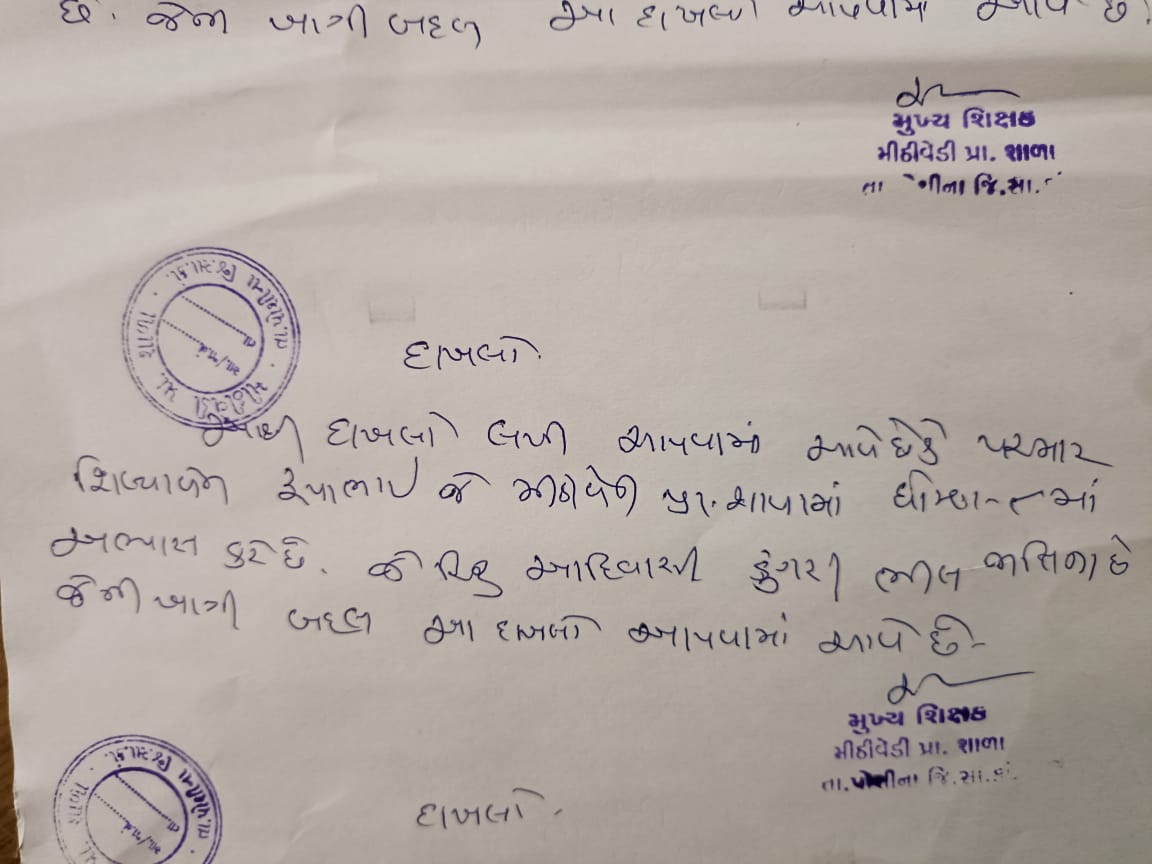 છે. જેની ખાત્રી બદલ આ દાખલો આપવામાં આવે છે.
મુખ્ય શિક્ષક
મીઠીવેડી પ્રા. શાળા
તા જિ.સા.
દાખલો.
આથી દાખલો લખી આપવામાં આવે છે કે પરમાર
રૂપાભાઈ જે મીઠીવેડી પ્રા. શાળામાં ધોરણ
અભ્યાસ કરે છે. જે હિન્દુ આદિવાસી ડુંગરી ભીલ જાતિના છે
જેની ખાત્રી બદલ આ દાખલો આપવામાં આવે છે-
મુખ્ય શિક્ષક
મીઠીવેડી પ્રા. શાળા
તા.પોશીના જિ.સા.કાં
દાખલો.